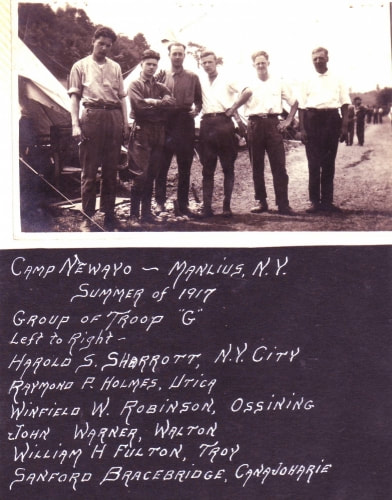 Camp Newayo ~ Manlius, N.Y.
Summer of 1917
Group of Troop "G"
Left to Right ~
Harold S. Sharrott, N.Y. City
Raymond P. Holmes, Utica
Winfield W. Robinson, Ossining
John Warner, Walton
William H Fulton, Troy
Sanford Bracebridge, Canajoharie